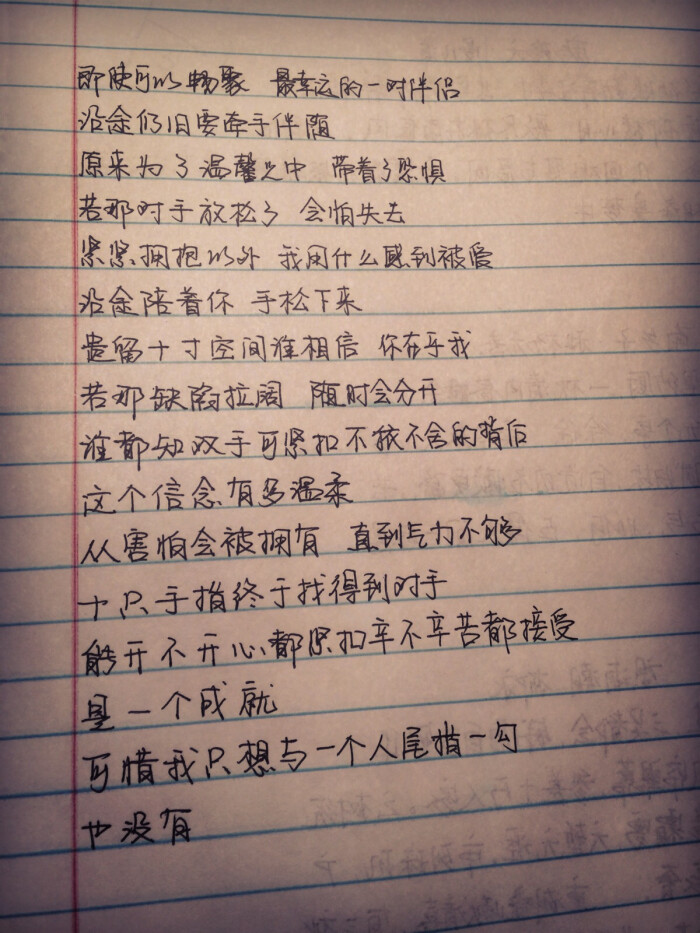 即使可以畅聚 最幸运的一对伴侣
沿途仍旧要牵手伴随
原来为了温馨之中 带着了恐惧
若那对手放松了 会怕失去
紧紧拥抱以外 我用什么感到被爱
沿途陪着你 手松下来
遗留十寸空间谁相信 你在乎我
若那缺陷拉阔 随时会分开
谁都知双手可紧扣不挽不舍的背后
这个信念有多温柔
从害怕会被拥有 直到气力不够
十只手指终于找得到对手
能开不开心都紧扣辛不辛苦都接受
是一个成就
可惜我只想与一个人尾指一勾
也没有